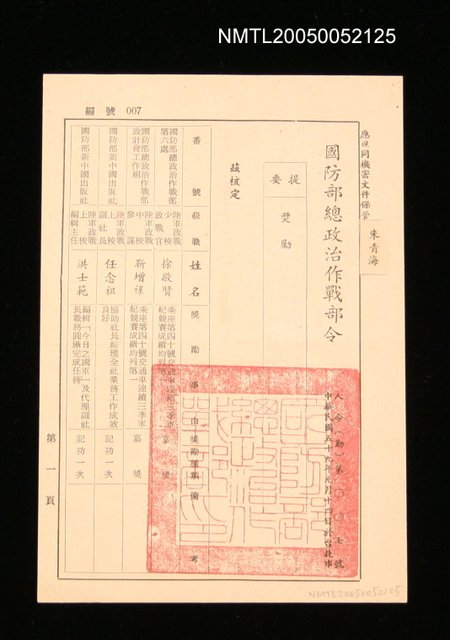 NMTL20050052125
編號 007
應視同機密文件保管
朱青海
國防部總政治作戰部令
人令(勤)第〇〇七號
中華民國五十九年元月十四日於台北市
提要
獎勵
茲核定
番號
級職
姓名
獎勵事由
獎勵種類
備考
國防部總政治作戰部第六處
陸軍政戰少校政戰官
徐啟賢
乘座第四十號交通車連續三季車紀競賽成績均列第一
嘉獎
國防部總政治作戰部政計會工作組
陸軍政戰中校參謀
靳增祿
乘座第四十號交通車連續三季車紀競賽成績均列第一
嘉獎
國防部新中國出版社
陸軍政戰上校副社長
任念祖
協助社長綜理全社業務工作成效良好
記功一次
國防部新中國出版社
陸軍政戰上校編輯主任
洪士範
編輯「今日之國軍」一及代理副社長職務圓滿完成任務
記功一次
第一頁
NMTL20050052125